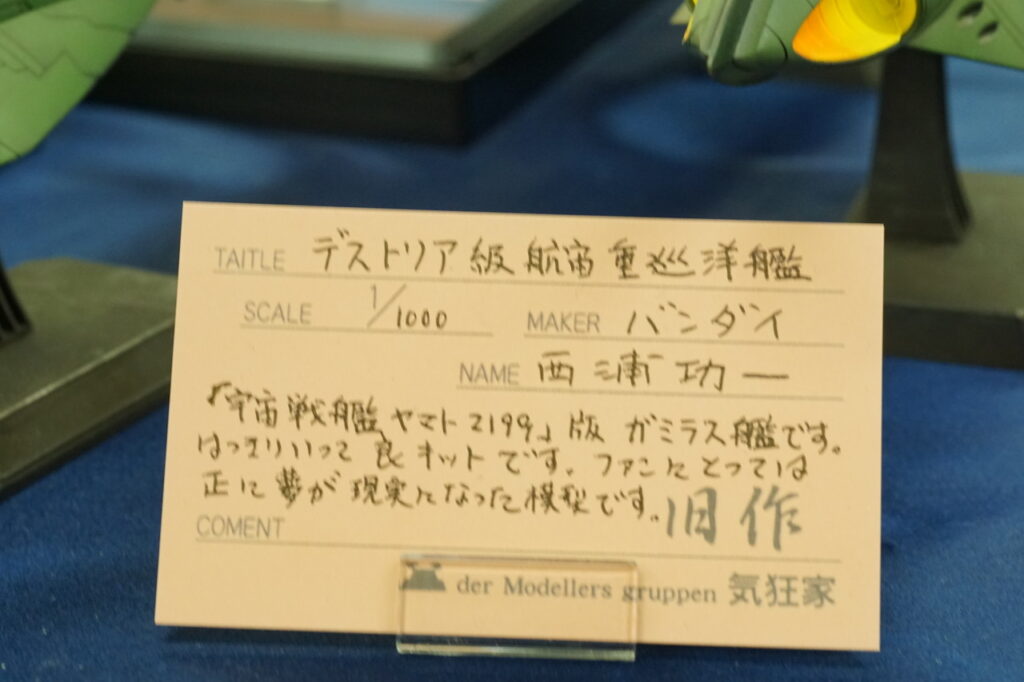 TAITLE デストリア級航宙重巡洋艦
SCALE 1/1000 MAKER バンダイ
NAME 西浦功一
「宇宙戦艦ヤマト2199」版 ガミラス艦です。
はっきりいって良キットです。ファンにとっては
正に夢が現実になった模型です。旧作
COMENT
der Modellers gruppen 気狂家